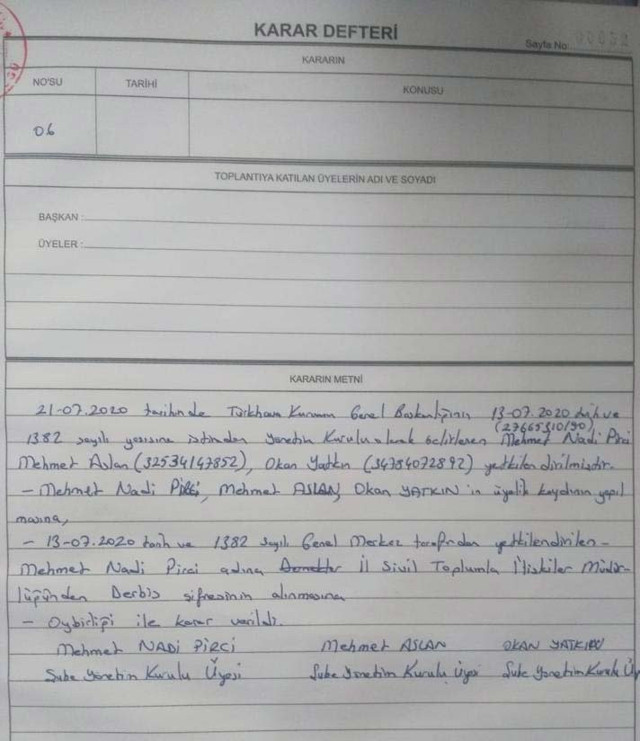 KARAR DEFTERİ
Sayfa No: 00052
KARARIN
NO'SU TARİHİ KONUSU
06
TOPLANTIYA KATILAN ÜYELERİN ADI VE SOYADI
BAŞKAN :
ÜYELER :
KARARIN METNİ
21-07.2020 tarihinde Türkhava Kurumu Genel Başkanlığının 13-07.2020 tarih ve
(27665310190)
1382 sayılı yazısına istinaden Yönetim Kurulu olarak belirlenen Mehmet Nadi Pirci
Mehmet Aslan (32534147852), Okan Yatkın (34784072892) yetkilendirilmiştir.
– Mehmet Nadi Pirci, Mehmet ASLAN, Okan YATKIN'ın üyelik kaydının yapıl
masına,
– 13-07.2020 tarih ve 1382 sayılı Genel Merkez tarafından yetkilendirilen –
Mehmet Nadi Pirci adına İl Sivil Toplumla İlişkiler Müdür-
lüğünden Derbis şifresinin alınmasına
– Oybirliği ile karar verildi.
Mehmet NADİ PİRCİ Mehmet ASLAN OKAN YATKIN
Şube Yönetim Kurulu Üyesi Şube Yönetim Kurulu Üyesi Şube Yönetim Kurulu Üy